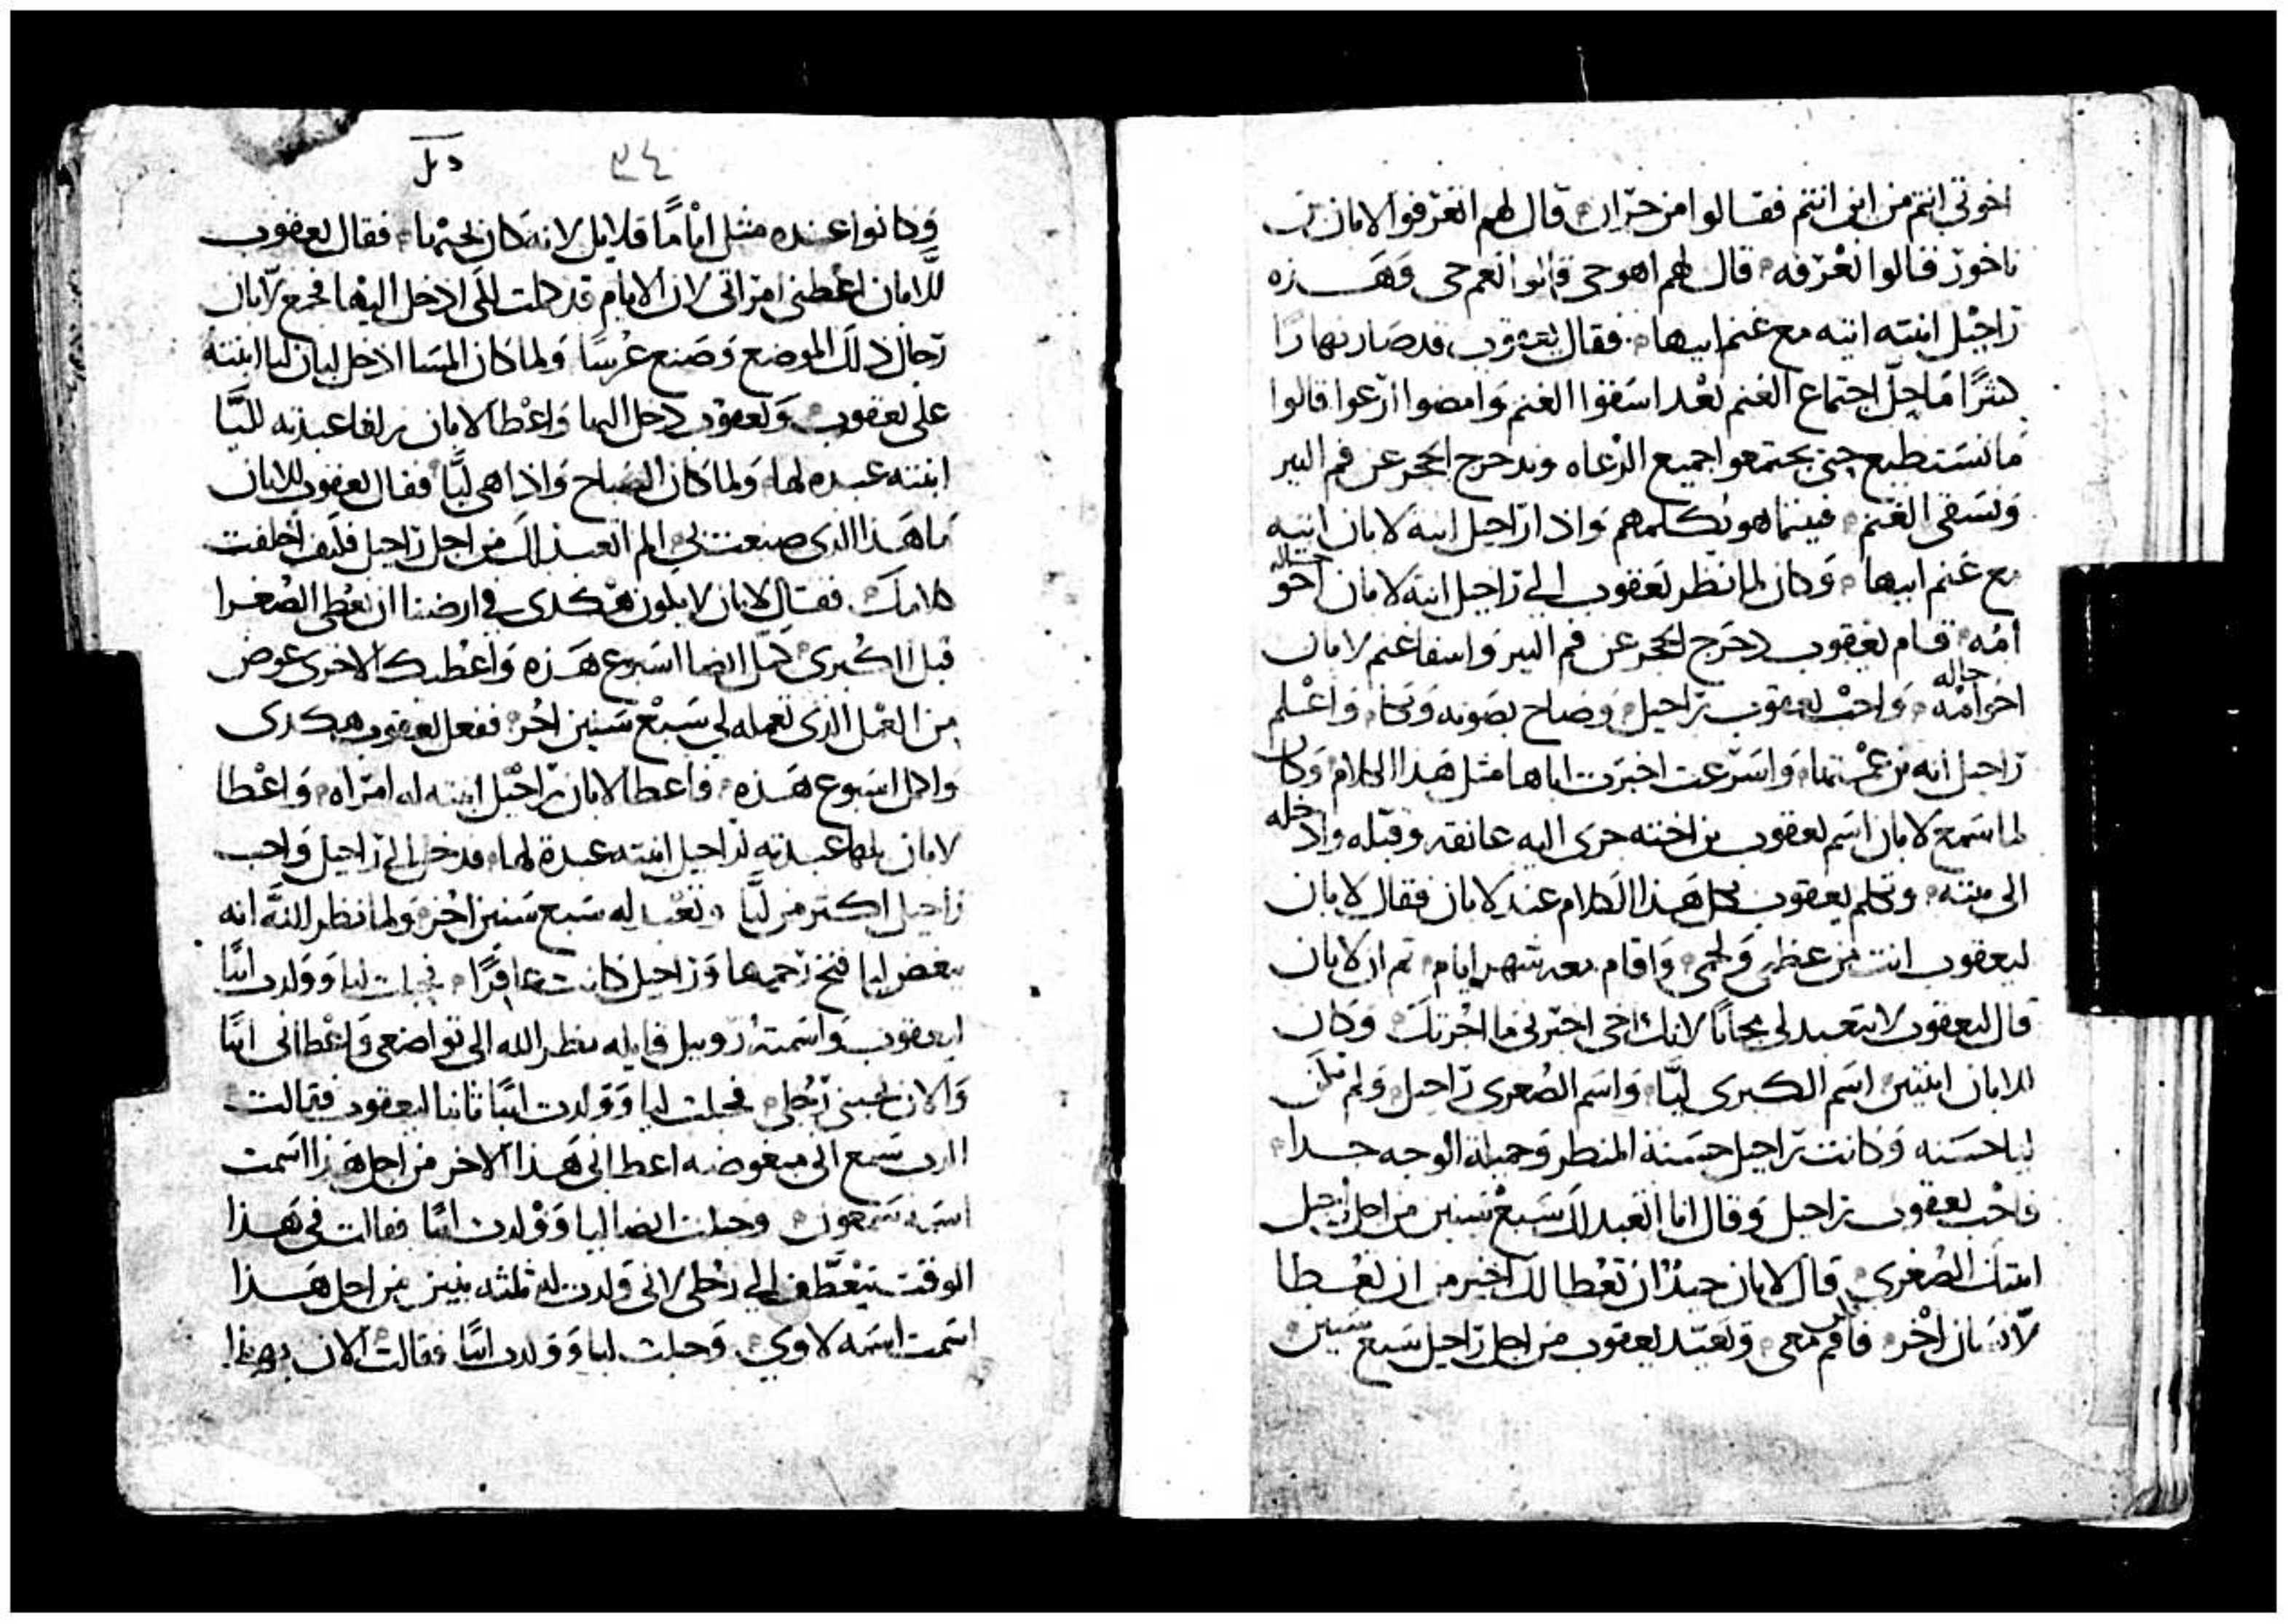 اخوتي انتم من اين انتم فقالوا من حران قال لهم اتعرفوا لابان بن
ناخور قالوا نعرفه قال لهم اهو حي قالوا نعم حي وهذه
راحيل ابنته اتيه مع غنم ابيها فقال يعقوب قد صار نهارا
كثرا ما حل اجتماع الغنم بعد اسقوا الغنم وامضوا ارعوا قالوا
ما نستطيع حتى يجتمعوا جميع الرعاه ويدحرج الحجر عن فم البير
ونسقي الغنم فبينما هو يكلمهم واذا راحيل ابنة لابان اتيه
مع غنم ابيها وكان لما نظر يعقوب الى راحيل ابنة لابان اخو
خاله
امه قام يعقوب دحرج الحجر عن فم البير واسقا غنم لابان
خاله
اخو امه واحب يعقوب راحيل وصاح بصوته وبكا واعلم
راحيل انه بن عمتها واسرعت اخبرت اباها مثل هذا الكلام وكان
لما سمع لابان اسم يعقوب بن اخته جرى اليه عانقه وقبله وادخله
الى بيته وتكلم يعقوب بكل هذا الكلام عند لابان فقال لابان
ليعقوب انت من عظمي ولحمي واقام معه شهر ايام ثم ان لابان
قال ليعقوب لا تتعبد لي مجانا لانك اخي اخبرني ما اجرتك وكان
للابان ابنتين اسم الكبرى ليّا واسم الصغرى راحيل ولم تكن
ليا حسنه وكانت راحيل حسنة المنظر وجميلة الوجه جدا
فاحب يعقوب راحيل وقال انا اتعبد لك سبع سنين من اجل راحيل
ابنتك الصغرى قال لابان جيدًا ان تعطا لك اخير من ان تعطا
لانسان اخر فاقم معي وتعبد يعقوب من اجل راحيل سبع سنين
٣٤
وكانوا عنده مثل ايامًا قلايل لانه كان يحبها فقال يعقوب
للابان اعطني امراتي لان الايام قد كملت لكي ادخل اليها فجمع لابان
رجال ذلك الموضع وصنع عرسًا ولما كان المسا ادخل لابان ليا ابنته
على يعقوب ويعقوب دخل اليها واعطا لابان زلفا عبدته لليّا
ابنته عبده لها ولما كان الصباح واذا هي ليّا فقال يعقوب للابان
ما هذا الذي صنعت بي الم اتعبد لك من اجل راحيل فكيف اخلفت
كلامك فقال لابان لا يكون هكذى في ارضنا ان نعطي الصغرا
قبل الكبرى كمل ايضا اسبوع هذه واعطيك الاخرى عوض
من العمل الذي تعمله لي سبع سنين اخر ففعل يعقوب هكدى
واكمل اسبوع هذه واعطا لابان راحيل ابنته له امراه واعطا
لابان بلها عبدته لراحيل ابنته عبدة لها فدخل الى راحيل واحب
راحيل اكتر من ليّا وتعبد له سبع سنين اخر ولما نظر الله انه
يبغض ليا فتح رحمها وراحيل كانت عاقرًا فحبلت ليا وولدت ابنًا
ليعقوب واسمته روبيل قايله نظر الله الى تواضعي واعطاني ابنًا
والان يحبني رجلي فحبلت ليا وولدت ابنًا ثانيا ليعقوب فقالت
الرب سمع اني مبغوضه اعطاني هذا الاخر من اجل هذا اسمت
اسمه شمعون وحبلت ايضا ليا وولدت ابنًا فقالت في هذا
الوقت يتعطف الي رجلي لاني ولدت له ثلثه بنين من اجل هذا
اسمت اسمه لاوي وحبلت ليا وولدت ابنًا فقالت الان بهذا